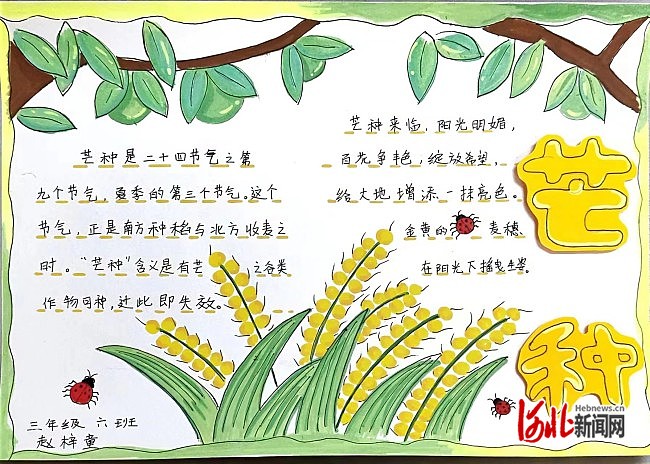 芒种是二十四节气之第
九个节气，夏季的第三个节气。这个
节气，正是南方种稻与北方收麦之
时。“芒种”含义是有芒之各类
作物可种，过此即失效。
芒种来临，阳光明媚，
百花争艳，绽放希望，
给大地增添一抹亮色。
金黄的麦穗、
在阳光下摇曳生姿。
芒
种
三年级 六班
赵梓童
Hebnews.cn
河北新闻网